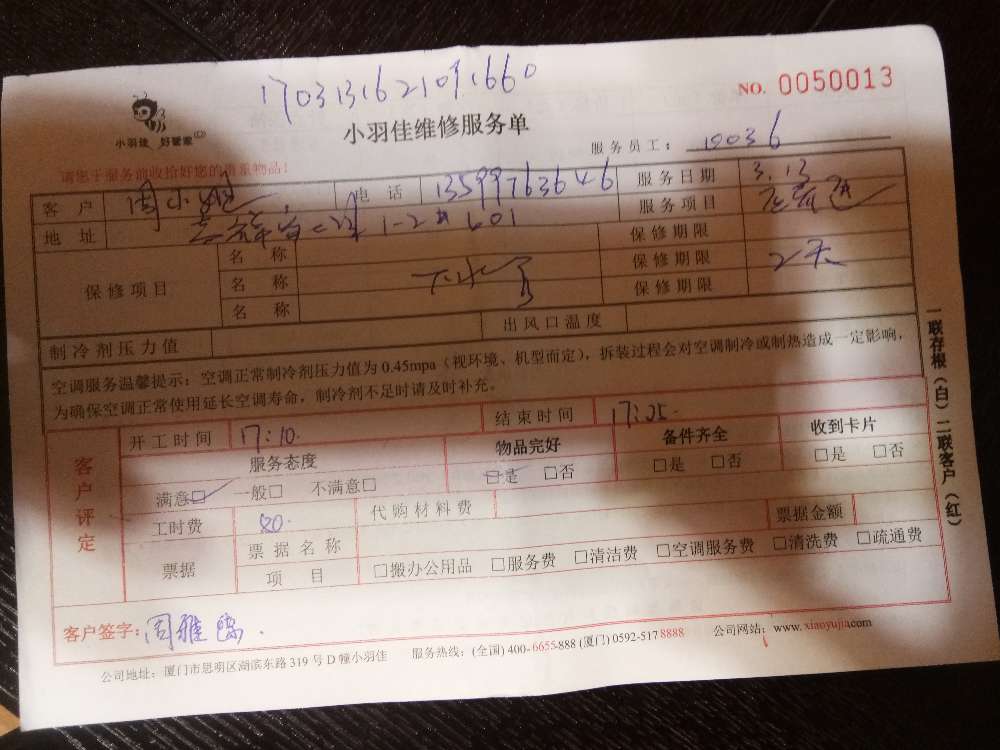 1703131621091660
NO. 0050013
小羽佳 好管家
小羽佳维修服务单
服务员工： 19036
请您于服务前收拾好您的贵重物品！
客户 周小姐 电话 13599763646 服务日期 3.13
地址 1-2 601 服务项目
保修项目 名称 保修期限
名称 下水 保修期限 2天
名称 保修期限
制冷剂压力值 出风口温度
空调服务温馨提示：空调正常制冷剂压力值为 0.45mpa（视环境、机型而定），拆装过程会对空调制冷或制热造成一定影响，
为确保空调正常使用延长空调寿命，制冷剂不足时请及时补充。
客户评定
开工时间 17:10. 结束时间 17:25.
服务态度 物品完好 备件齐全 收到卡片
满意□ 一般□ 不满意□ □是 □否 □是 □否 □是 □否
工时费 80. 代购材料费 票据金额
票据 票据名称
项目 □搬办公用品 □服务费 □清洁费 □空调服务费 □清洗费 □疏通费
客户签字：周雅
公司地址：厦门市思明区湖滨东路 319 号 D 幢小羽佳 服务热线：(全国) 400-6655-888 (厦门) 0592-517 8888 公司网站：www. xiaoyujia.com
一联存根（白）二联客户（红）